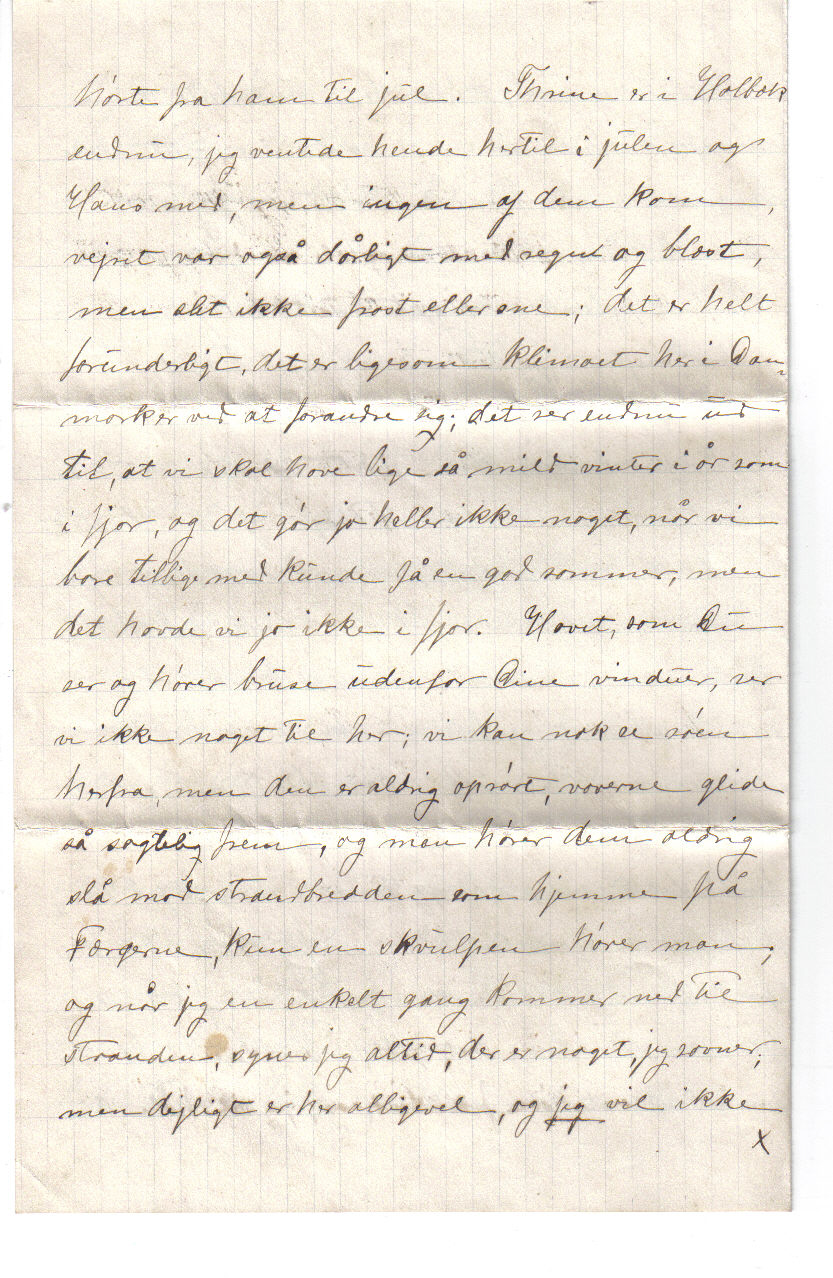 hørte fra ham til jul. Thrine er i Holbæk
endnu, jeg ventede hende hertil i julen og
Hans med, men ingen af dem kom,
vejret var også dårligt med regn og blæst,
men slet ikke frost eller sne; det er helt
forunderligt, det er ligesom klimaet her i Dan-
mark er ved at forandre sig; det ser endnu ud
til, at vi skal have lige så mild vinter i år som
i fjor, og det gór jo heller ikke noget, når vi
bare tillige med kunde få en god sommer, men
det havde vi jo ikke i fjor. Havet, som Du
ser og hører bruse udenfor Dine vinduer, ser
vi ikke noget til her; vi kan nok se søen
herfra, men den er aldrig oprørt, voverne glide
så sagtelig frem, og man hører dem aldrig
slå mod strandbredden som hjemme på
Færøerne, kun en skvulpen hører man,
og når jeg en enkelt gang kommer ned til
stranden, synes jeg altid, der er noget, jeg savner;
men dejligt er her alligevel, og jeg vil ikke
x